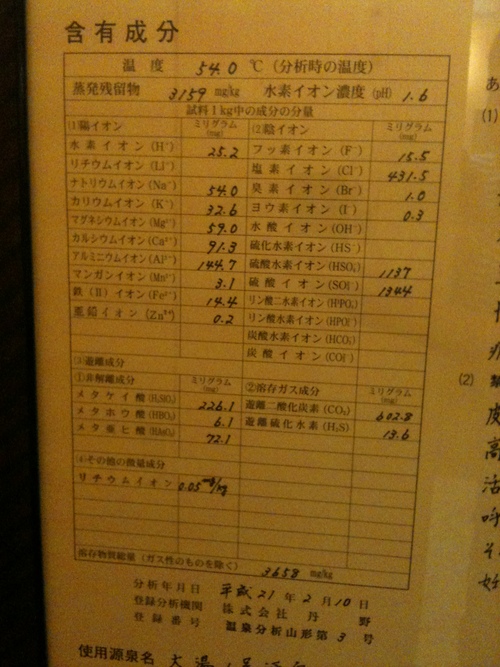 含有成分
温度 54.0 ℃ (分析時の温度)
蒸発残留物 3159 mg/kg 水素イオン濃度 (pH) 1.6
試料1kg中の成分の分量
(1)陽イオン ミリグラム (mg) (2)陰イオン ミリグラム (mg)
水素イオン(H⁺) 25.2 フッ素イオン(F⁻) 15.5
リチウムイオン(Li⁺) 塩素イオン(Cl⁻) 431.5
ナトリウムイオン(Na⁺) 54.0 臭素イオン(Br⁻) 1.0
カリウムイオン(K⁺) 32.6 ヨウ素イオン(I⁻) 0.3
マグネシウムイオン(Mg²⁺) 59.0 水酸イオン(OH⁻)
カルシウムイオン(Ca²⁺) 91.3 硫化水素イオン(HS⁻)
アルミニウムイオン(Al³⁺) 144.7 硫酸水素イオン(HSO₄⁻) 1137
マンガンイオン(Mn²⁺) 3.1 硫酸イオン(SO₄²⁻) 1344
鉄(Ⅱ)イオン(Fe²⁺) 14.4 リン酸二水素イオン(H₂PO₄⁻)
亜鉛イオン(Zn²⁺) 0.2 リン酸水素イオン(HPO₄²⁻)
炭酸水素イオン(HCO₃⁻)
炭酸イオン(CO₃²⁻)
(3)遊離成分
①非解離成分 ミリグラム (mg) ②溶存ガス成分 ミリグラム (mg)
メタケイ酸(H₂SiO₃) 226.1 遊離二酸化炭素(CO₂) 602.8
メタホウ酸(HBO₂) 6.1 遊離硫化水素(H₂S) 13.6
メタ亜ヒ酸(HAsO₂) 72.1
(4)その他の微量成分
リチウムイオン 0.05 mg/kg
溶存物質総量(ガス性のものを除く) 3658 mg/kg
分析年月日 平成21年2月10日
登録分析機関 株式会社 丹野
登録番号 温泉分析山形第3号
使用源泉名 大湯
あ
(1)
(2)
皮
高
活
呼
そ
妊